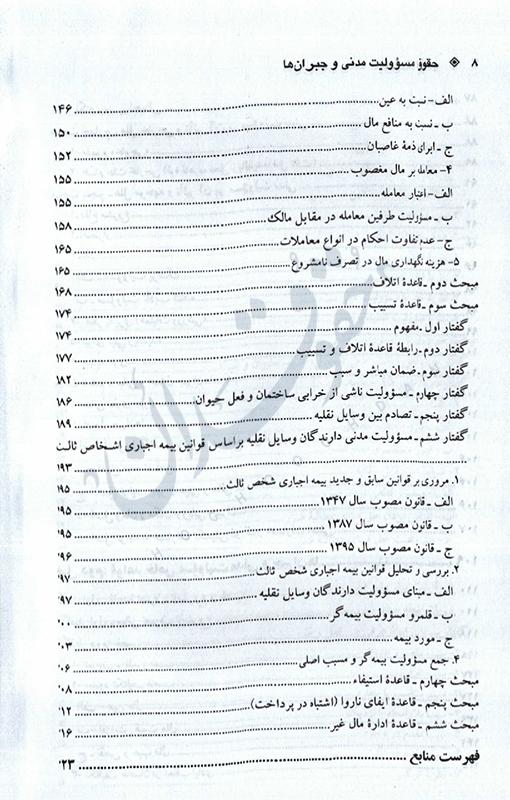 ۸ ◈ حقوق مسؤولیت مدنی و جبران‌ها
الف- نسبت به عین ۱۴۶
ب - نسبت به منافع مال ۱۵۰
ج - ابرای ذمهٔ غاصبان ۱۵۲
۴- معامله بر مال مغصوب ۱۵۵
الف- اعتبار معامله ۱۵۵
ب - مسؤولیت طرفین معامله در مقابل مالک ۱۵۸
ج- عدم تفاوت احکام در انواع معاملات ۱۶۵
۵- هزینه نگهداری مال در تصرف نامشروع ۱۶۵
مبحث دوم - قاعدهٔ اتلاف ۱۶۸
مبحث سوم - قاعدهٔ تسبیب ۱۷۴
گفتار اول - مفهوم ۱۷۴
گفتار دوم - رابطهٔ قاعدهٔ اتلاف و تسبیب ۱۷۷
گفتار سوم - ضمان مباشر و سبب ۱۸۲
گفتار چهارم - مسؤولیت ناشی از خرابی ساختمان و فعل حیوان ۱۸۶
گفتار پنجم - تصادم بین وسایل نقلیه ۱۸۹
گفتار ششم - مسؤولیت مدنی دارندگان وسایل نقلیه براساس قوانین بیمه اجباری اشخاص ثالث
۱۹۳
۱. مروری بر قوانین سابق و جدید بیمه اجباری شخص ثالث ۹۵
الف - قانون مصوب سال ۱۳۴۷ ۹۵
ب - قانون مصوب سال ۱۳۸۷ ۹۵
ج - قانون مصوب سال ۱۳۹۵ ۹۶
۲. بررسی و تحلیل قوانین بیمه اجباری شخص ثالث ۹۷
الف - مبنای مسؤولیت دارندگان وسایل نقلیه ۹۷
ب - قلمرو مسؤولیت بیمه‌گر ۰۰
ج - مورد بیمه ۰۳
۴. جمع مسؤولیت بیمه‌گر و مسبب اصلی ۰۶
مبحث چهارم - قاعدهٔ استیفاء ۰۸
مبحث پنجم - قاعدهٔ ایفای ناروا (اشتباه در پرداخت) ۱۲
مبحث ششم - قاعدهٔ ادارهٔ مال غیر ۱۶
فهرست منابع ۲۳